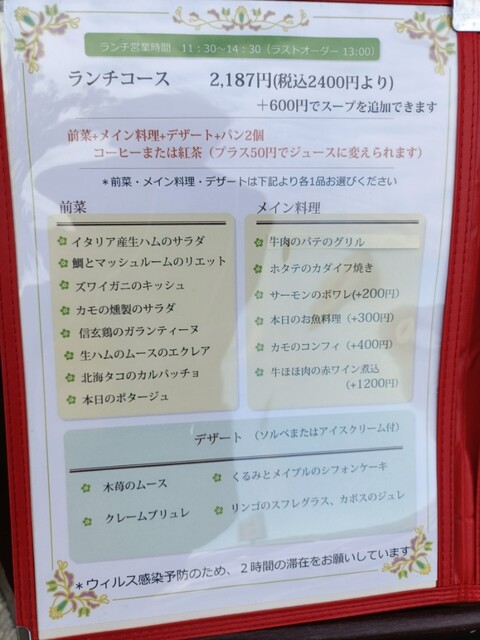 ランチ営業時間 11：30～14：30（ラストオーダー 13:00）
ランチコース 2,187円(税込2400円より)
＋600円でスープを追加できます
前菜+メイン料理+デザート+パン2個
コーヒーまたは紅茶（プラス50円でジュースに変えられます）
＊前菜・メイン料理・デザートは下記より各1品お選びください
前菜
イタリア産生ハムのサラダ
鯛とマッシュルームのリエット
ズワイガニのキッシュ
カモの燻製のサラダ
信玄鶏のガランティーヌ
生ハムのムースのエクレア
北海タコのカルパッチョ
本日のポタージュ
メイン料理
牛肉のパテのグリル
ホタテのカダイフ焼き
サーモンのポワレ(+200円)
本日のお魚料理（+300円）
カモのコンフィ（+400円）
牛ほほ肉の赤ワイン煮込
（+1200円）
デザート （ソルベまたはアイスクリーム付）
木苺のムース
くるみとメイプルのシフォンケーキ
クレームブリュレ
リンゴのスフレグラス、カボスのジュレ
＊ウィルス感染予防のため、２時間の滞在をお願いしています